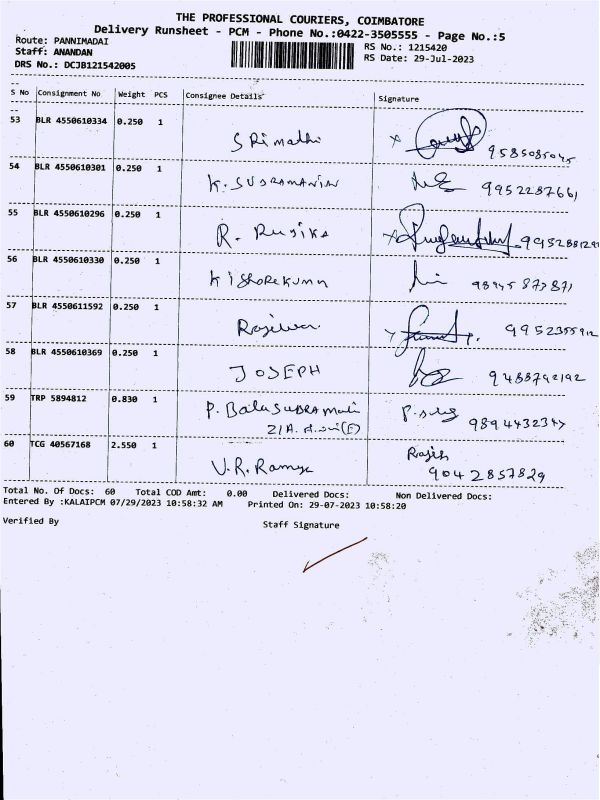 THE PROFESSIONAL COURIERS, COIMBATORE
Delivery Runsheet - PCM - Phone No.:0422-3505555 - Page No.:5
Route: PANNIMADAI
Staff: ANANDAN
DRS No.: DCJB121542005
RS No.: 1215420
RS Date: 29-Jul-2023
S No Consignment No Weight PCS Consignee Details Signature
53 BLR 4550610334 0.250 1
SRimathi
54 BLR 4550610301 0.250 1
K. SUBRAMANIAN 9952287661
55 BLR 4550610296 0.250 1
R.
56 BLR 4550610330 0.250 1
KISHOREKUMAR
57 BLR 4550611592 0.250 1
9952355912
58 BLR 4550610369 0.250 1
JOSEPH 9488792192
59 TRP 5894812 0.830 1
P. BalaSUBRAMani
60 TCG 40567168 2.550 1
V.R. Ramya
9042857829
Total No. Of Docs: 60 Total COD Amt: 0.00 Delivered Docs: Non Delivered Docs:
Entered By :KALAIPCM 07/29/2023 10:58:32 AM Printed On: 29-07-2023 10:58:20
Verified By Staff Signature